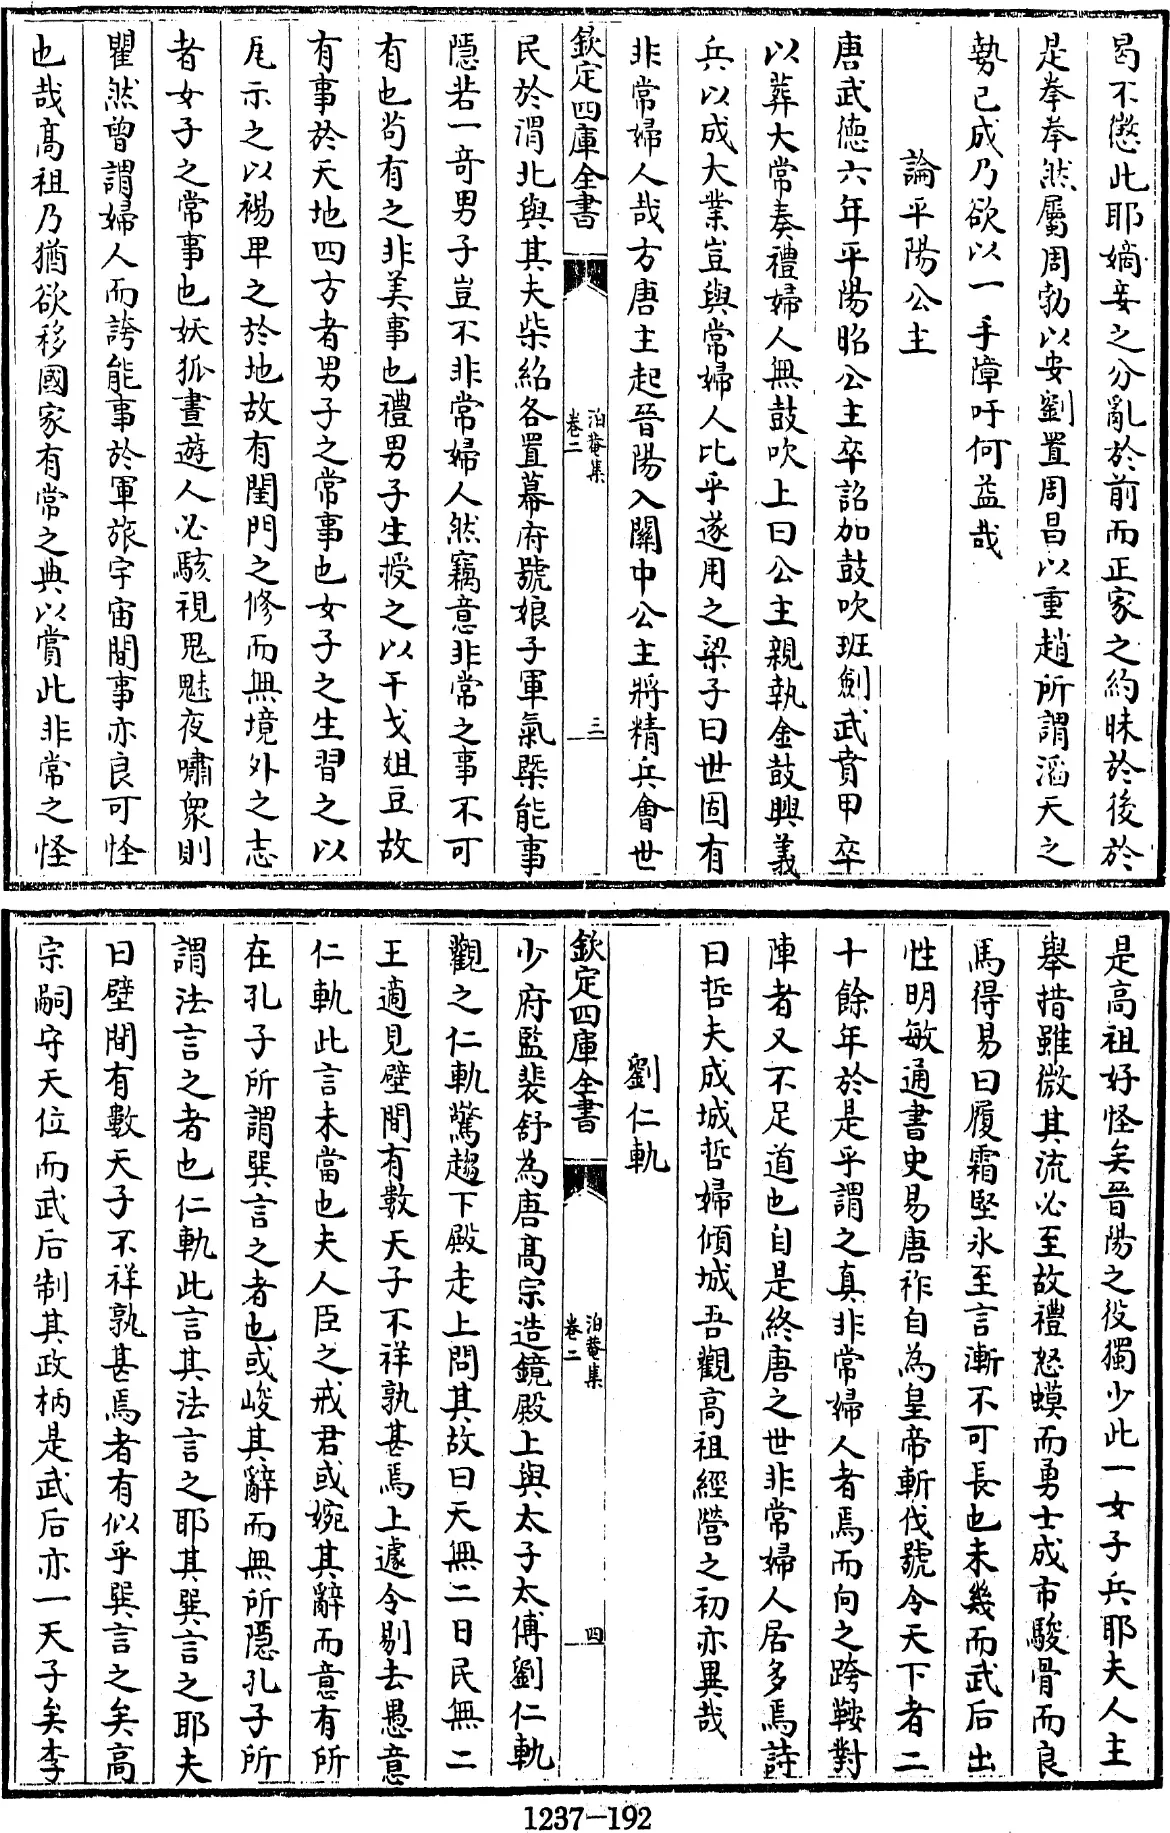 曷不懲此耶嫡妾之分亂於前而正家之約昧於後於
是拳拳然屬周勃以安劉置周昌以重趙所謂滔天之
勢已成乃欲以一手障吁何益哉
論平陽公主
唐武德六年平陽昭公主卒詔加鼓吹班劍武賁甲卒
以葬大常奏禮婦人無鼓吹上曰公主親執金鼓興義
兵以成大業豈與常婦人比乎遂用之梁子曰世固有
非常婦人哉方唐主起晉陽入關中公主將精兵會世
欽定四庫全書
泊菴集
卷二
三
民於渭北與其夫柴紹各置幕府號娘子軍氣槩能事
隱若一竒男子豈不非常婦人然竊意非常之事不可
有也苟有之非美事也禮男子生授之以干戈俎豆故
有事於天地四方者男子之常事也女子之生習之以
瓦示之以裼卑之於地故有閨門之修而無境外之志
者女子之常事也妖狐晝遊人必駭視鬼魅夜嘯衆則
瞿然曾謂婦人而誇能事於軍旅宇宙間事亦良可怪
也哉高祖乃猶欲移國家有常之典以賞此非常之怪
是高祖好怪矣晉陽之役獨少此一女子兵耶夫人主
舉措雖微其流必至故禮怒蟆而勇士成市駿骨而良
馬得易曰履霜堅氷至言漸不可長也未幾而武后出
性明敏通書史易唐祚自為皇帝斬伐號令天下者二
十餘年於是乎謂之真非常婦人者焉而向之跨鞍對
陣者又不足道也自是終唐之世非常婦人居多焉詩
曰哲夫成城哲婦傾城吾觀高祖經營之初亦異哉
劉仁軌
欽定四庫全書
泊菴集
卷二
四
少府監裴舒為唐高宗造鏡殿上與太子太傅劉仁軌
觀之仁軌驚趨下殿走上問其故曰天無二日民無二
王適見壁間有數天子不祥孰甚焉上遽令剔去愚意
仁軌此言未當也夫人臣之戒君或婉其辭而意有所
在孔子所謂巽言之者也或峻其辭而無所隱孔子所
謂法言之者也仁軌此言其法言之耶其巽言之耶夫
曰壁間有數天子不祥孰甚焉者有似乎巽言之矣高
宗嗣守天位而武后制其政柄是武后亦一天子矣李
1237—192